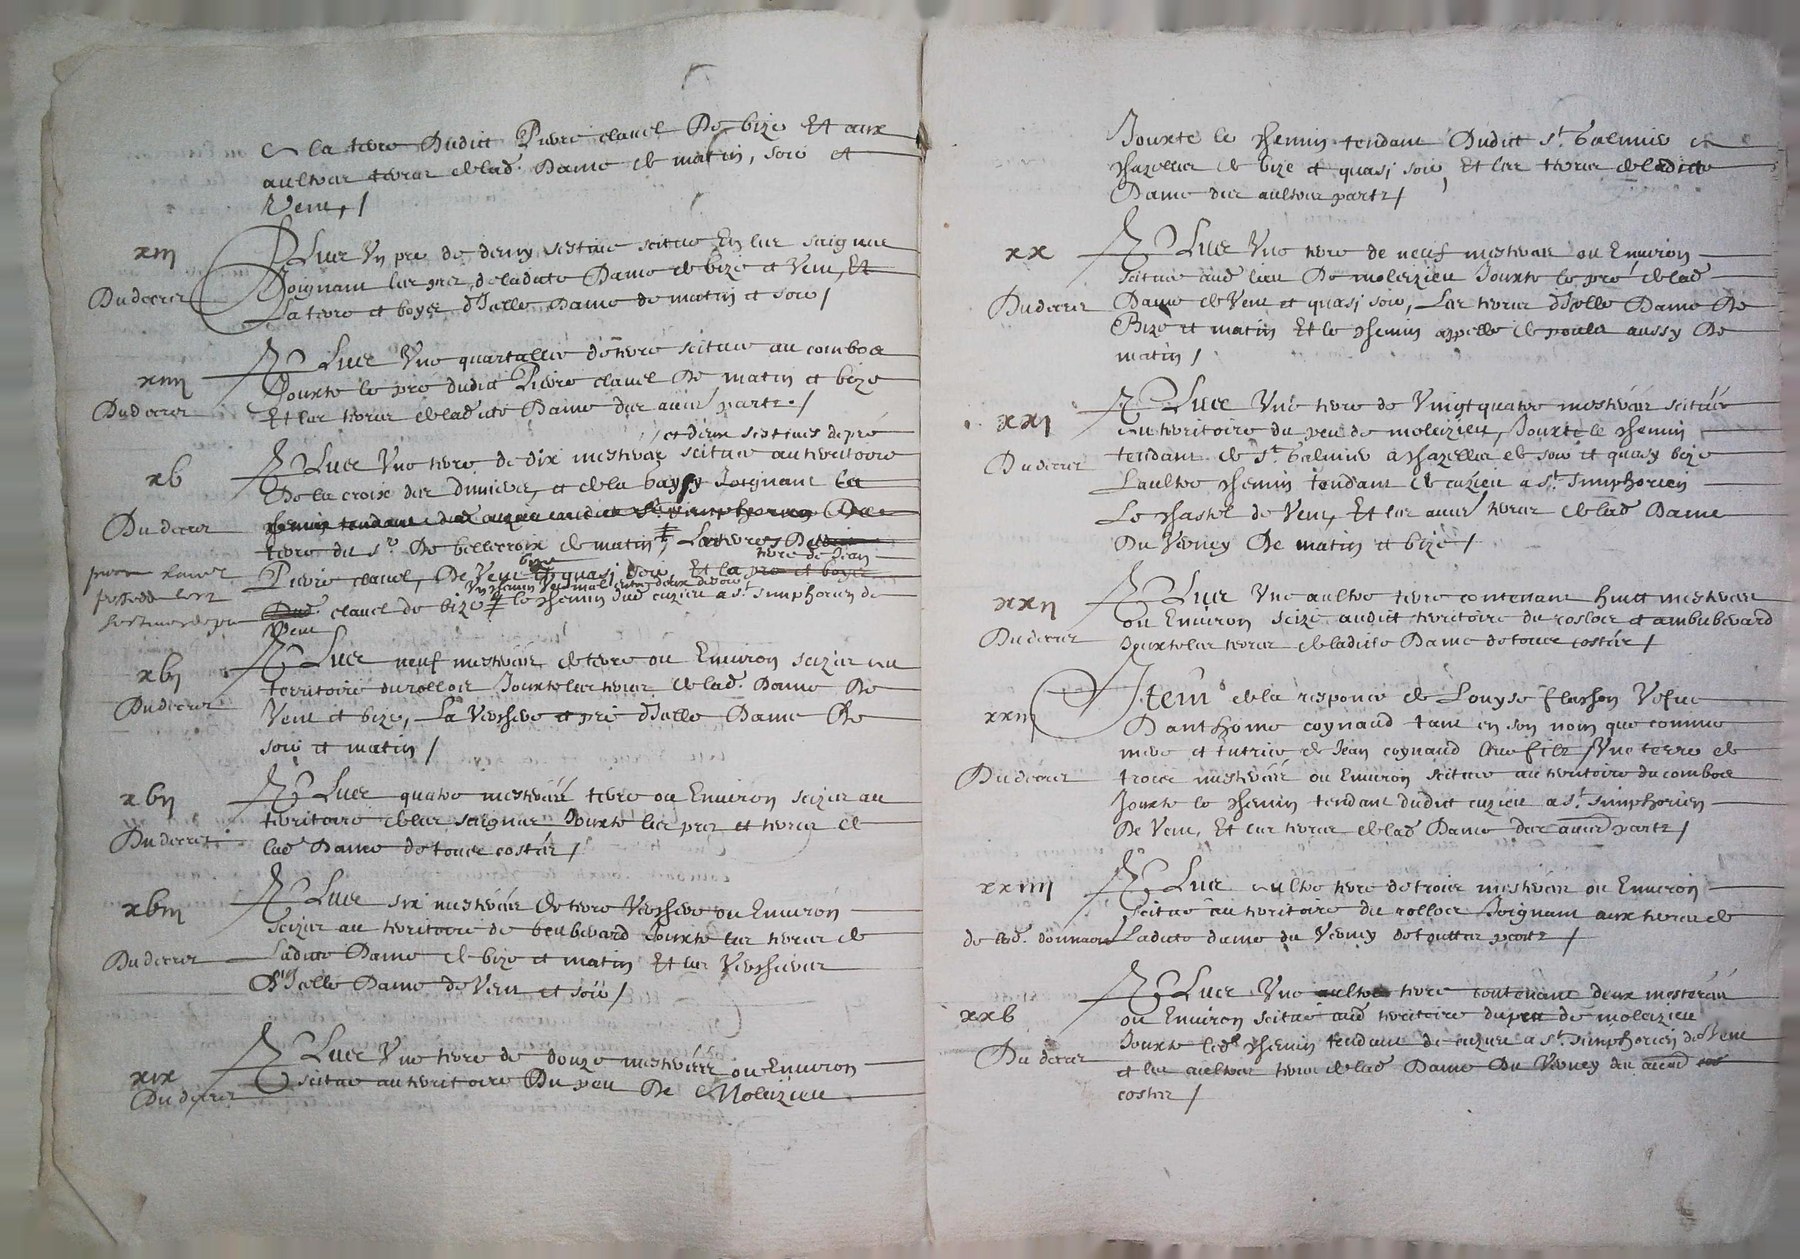 & la terre Dudict Pierre clavel De bize Et aux
aultres terres de lad. Dame de matin, soir et
Vent, /
xiii
Plus Vn pre de demy sestiue scitue En les saignes
Joignant les prez de ladicte Dame de bize et Vent, Et
Du decret
La terre et boyes d'Icelle Dame de matin et soir /
xiiii
Plus Vne quartallee de terre scitue au combos
Jouxte le pre dudict Pierre clavel De matin et bize
Du decret
Et les terres de ladicte Dame des autres partz. /
/ et deux sestiues de pre
xv
Plus Vne terre de dix mesterees scitue au territoire
De la croix des Dimieres, et de la Joignant La
Du decret
terre du sr. De bellecroix de matin, La terre
terre de Jean
Pierre clavel, De Vent quasi soir Et la pre et boyes
clavel de bize le chemin dud cuzieu a St. simphorien de
Vent
xvi
Plus neuf mesterees de terre ou Enuiron scizes au
Du decret
territoire du rosloir Jouxte les terres de lad. Dame De
Vent et bize, La Verchere et pre d'Icelle Dame De
soir et matin /
xvii
Plus quatre mesterees terre ou Enuiron scizes au
territoire de les saignes Jouxte les prez et terres de
Du decret
lad Dame de toutes costes /
xviii
Plus six mesterees de terre Verchere ou Enuiron
scizes au territoire de boulevard Jouxte les terres de
Du decret
Ladicte Dame de bize et matin Et les Vercheres
D'Icelle Dame de Vent et soir /
xix
Plus Vne terre de douze mesterees ou Enuiron
Du decret
scitue au territoire Du peu De Moleizieu
Jouxte le chemin tendant Dudict St. Galmier a
chazelles de bize et quasi soir, Et les terres de ladicte
Dame des aultres partz /
xx
Plus Vne terre de neuf mesterees ou Enuiron
scitue aud lieu De moleizieu Jouxte le pré de lad
Du decret
Dame de Vent et quasi soir, Les terres d'Icelle Dame De
Bize et matin Et le chemin appelle de aussy De
matin /
xxi
Plus Vne terre de Vingt quatre mesterees scituée
au territoire du peu de moleizieu, Jouxte le chemin
Du decret
tendant de St. Galmier a chazelles de soir et quasy bize
L'aultre chemin tendant de cuzieu a St. Simphorien
Le chastel de Vent, Et les autres terres de lad Dame
Du Verney De matin et bize /
xxii
Plus Vne aultre terre contenant huict mesterees
ou Enuiron scize audict territoire du rosloir et ambulevard
Du decret
Jouxte les terres de ladicte Dame de toutes costes /
xxiii
Item de la responce de Louyse flachon Vefue
D'anthoine coynaud tant en son nom que comme
mere et tutrice de Jean coynaud son filz Vne terre de
Du decret
troies mesterees ou Enuiron scitue au territoire du combos
Jouxte le chemin tendant dudict cuzieu a St. Simphorien
De Vent, Et les terres de lad Dame des autres partz /
xxiiii
Plus aultre terre de troies mesterees ou Enuiron
scitue au territoire du rolloir Joignant aux terres de
Ladicte dame du Verney de toutes partz /
xxv
Plus Vne aultre terre contenant deux mesterees
ou Enuiron scitue aud territoire du peu de moleizieu
Jouxte led chemin tendant de cuzieu a St. Simphorien de Vent
Du decret
et les aultres terres de lad Dame Du Verney des autres
costes /